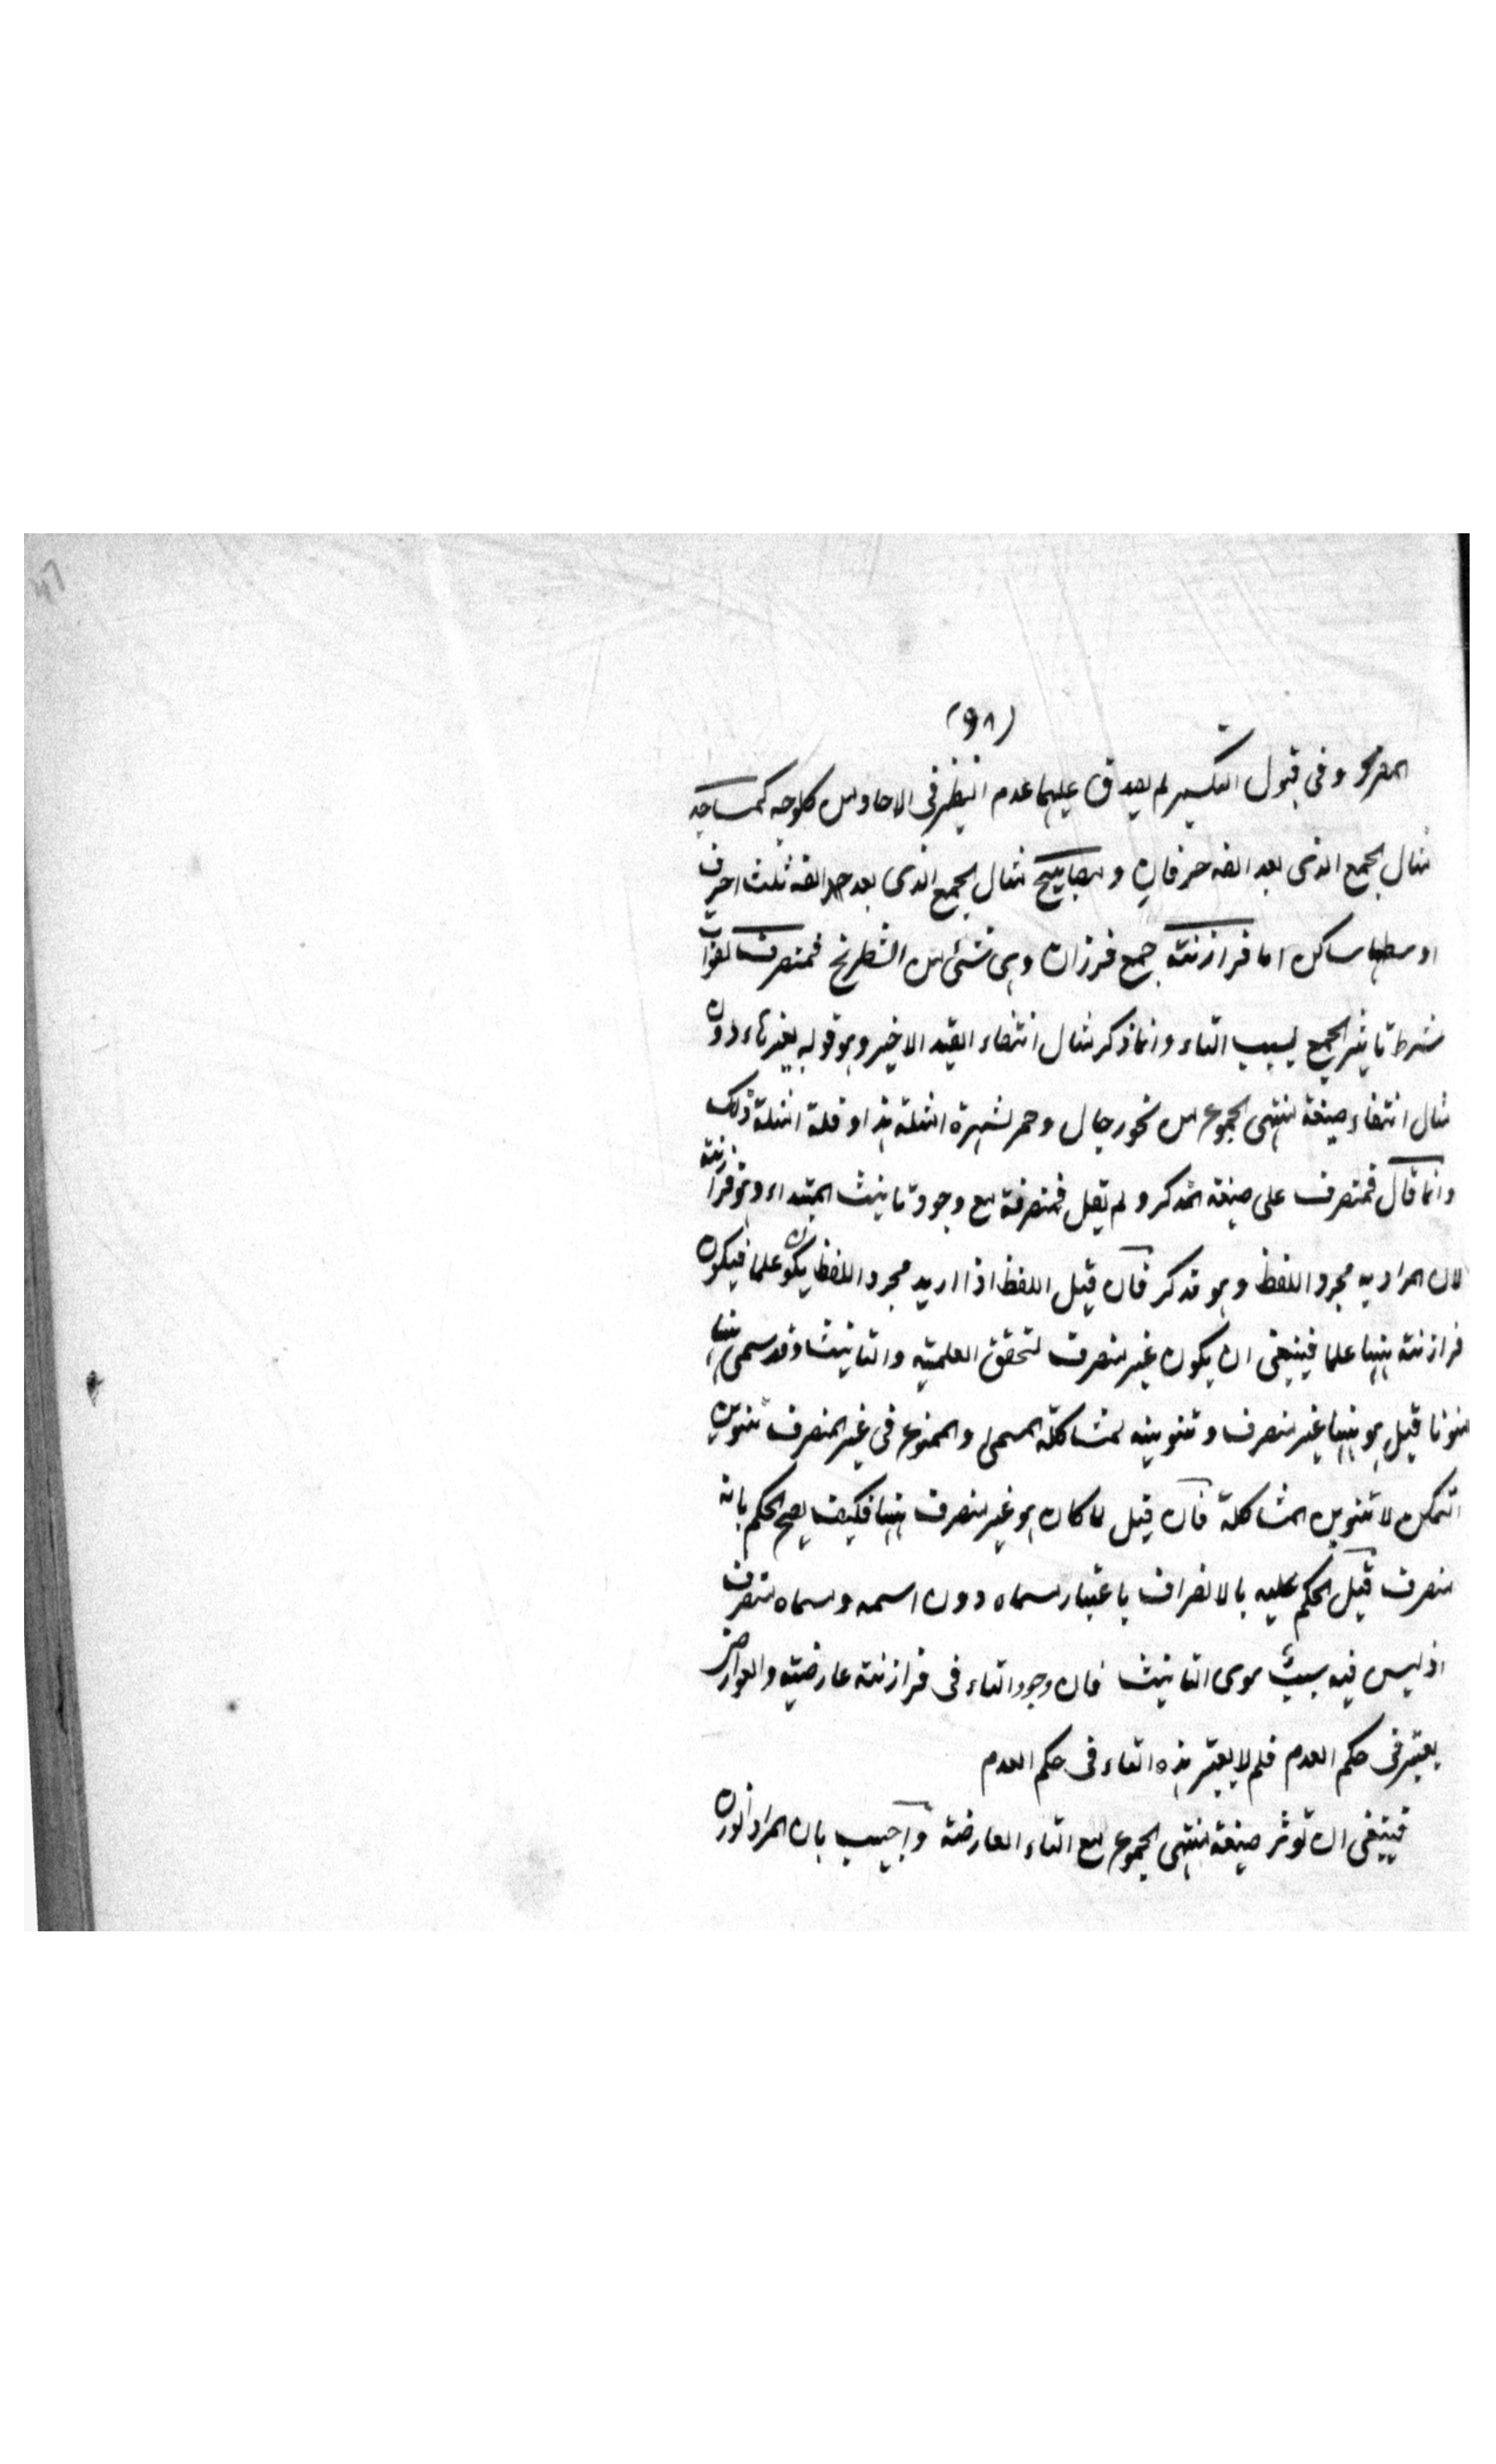 (٩٨)
المفرد وفى قبول التكسير لم يصدق عليهما عدم النظير فى الاحاد من كل وجه كمساجد
مثال الجمع الذى بعد الفه حرفان ومصابيح مثال الجمع الذى بعد الفه ثلث احرف
اوسطها ساكن اما فرازنة جمع فرزان وهى شئ من الشطرنج فمنصرف لفوات
شرط تاثير الجمع بسبب التاء وانما ذكر مثال انتفاء القيد الاخير وهو قوله بغير تاء دون
مثال انتفاء صيغة منتهى الجموع من نحو رجال وحمر لشهرة امثلة هذا وقلة امثلة ذلك
وانما قال فمنصرف على صيغة المذكر ولم يقل فمنصرفة مع وجود تانيث المبتداء وهو فرازنة
لان المراد به مجرد اللفظ وهو مذكر فان قيل اللفظ اذا اريد مجرد اللفظ يكون علما فيكون
فرازنة ههنا علما فينبغى ان يكون غير منصرف لتحقق العلمية والتانيث وقد سمى ههنا
منونا قيل هو ههنا غير منصرف وتنوينه لمشاكلة المسمى والممنوع فى غير المنصرف تنوين
التمكن لا تنوين المشاكلة فان قيل لما كان هو غير منصرف ههنا فكيف يصح الحكم بانه
منصرف قيل الحكم عليه بالانصراف باعتبار مسماه دون اسمه ومسماه منصرف
اذ ليس فيه سبب سوى التانيث فان وجود التاء فى فرازنة عارضية والعوارض
يعتبر فى حكم العدم فلم لا يعتبر هذه التاء فى حكم العدم
فينبغى ان توثر صيغة منتهى الجموع مع التاء العارضة واجيب بان المراد